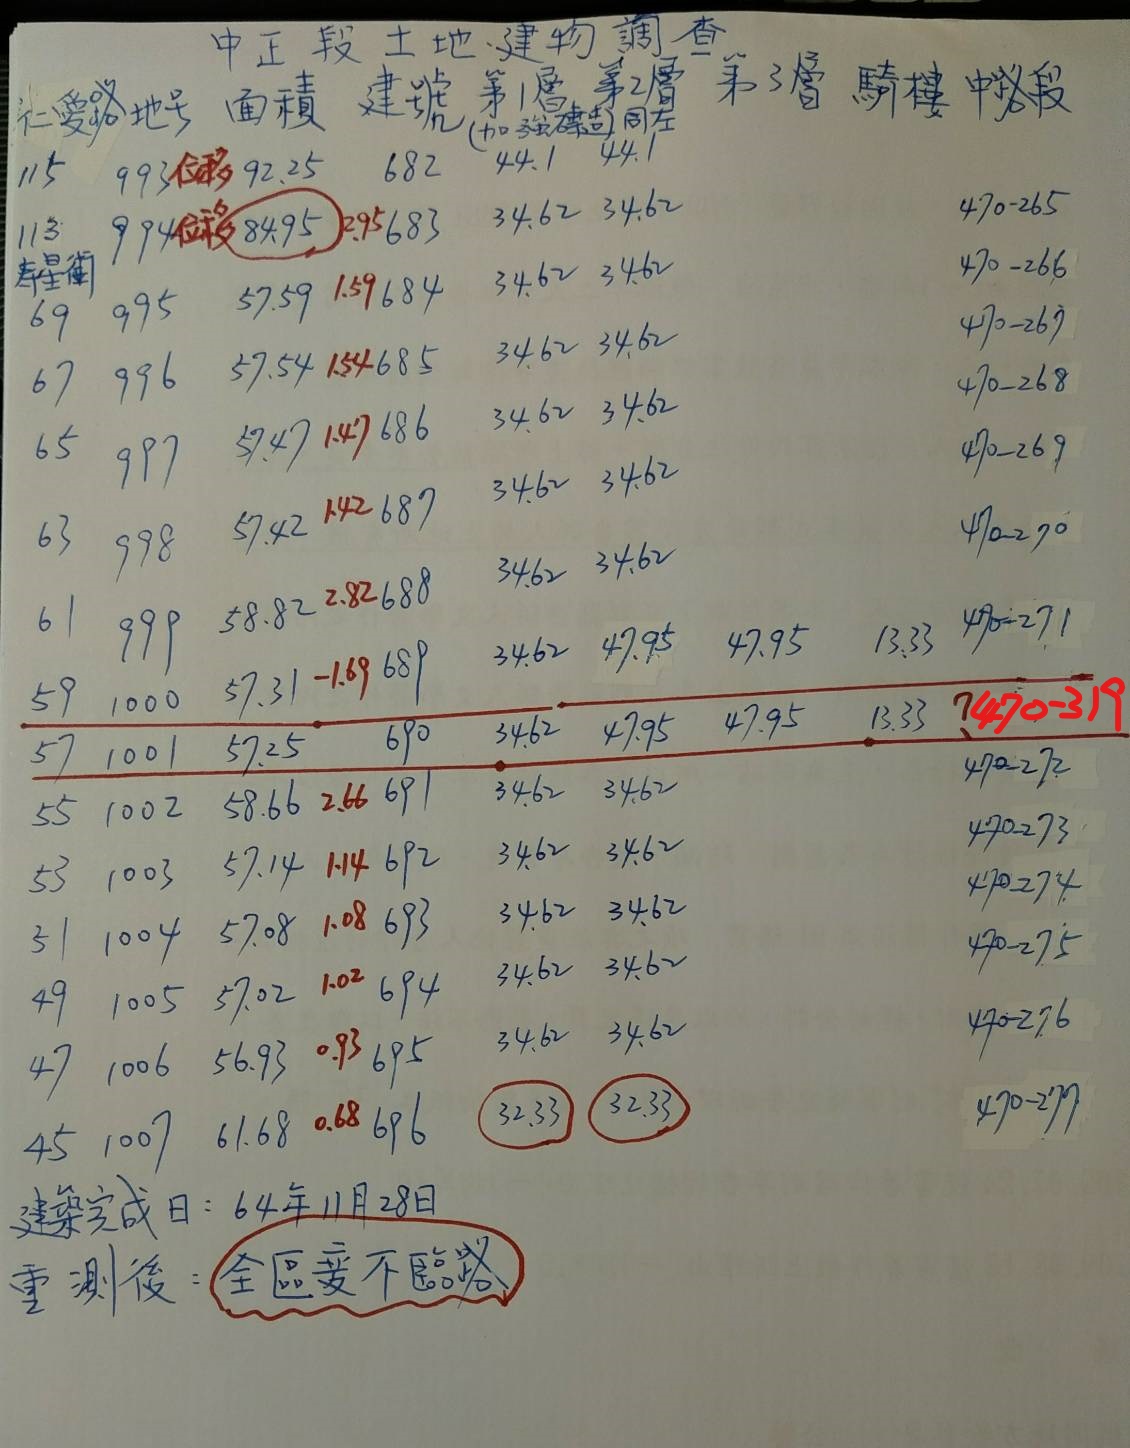 中正段土地.建物調查
仁愛路 地号 面積 建號 第1層 第2層 第3層 騎樓 中路段
(加強磚造) 同左
115 993 位移 92.25 682 44.1 44.1
113 994 位移 84.95 2.95 683 34.62 34.62 470-265
寿星街
69 995 57.59 1.59 684 34.62 34.62 470-266
67 996 57.54 1.54 685 34.62 34.62 470-267
65 997 57.47 1.47 686 34.62 34.62 470-268
63 998 57.42 1.42 687 34.62 34.62 470-269
61 999 58.82 2.82 688 34.62 34.62 470-270
59 1000 57.31 -1.69 689 34.62 47.95 47.95 13.33 470-271
57 1001 57.25 690 34.62 47.95 47.95 13.33 ?470-319
55 1002 58.66 2.66 691 34.62 34.62 470-272
53 1003 57.14 1.14 692 34.62 34.62 470-273
51 1004 57.08 1.08 693 34.62 34.62 470-274
49 1005 57.02 1.02 694 34.62 34.62 470-275
47 1006 56.93 0.93 695 34.62 34.62 470-276
45 1007 61.68 0.68 696 32.33 32.33 470-277
建築完成日：64年11月28日
重測後：全區变不臨路